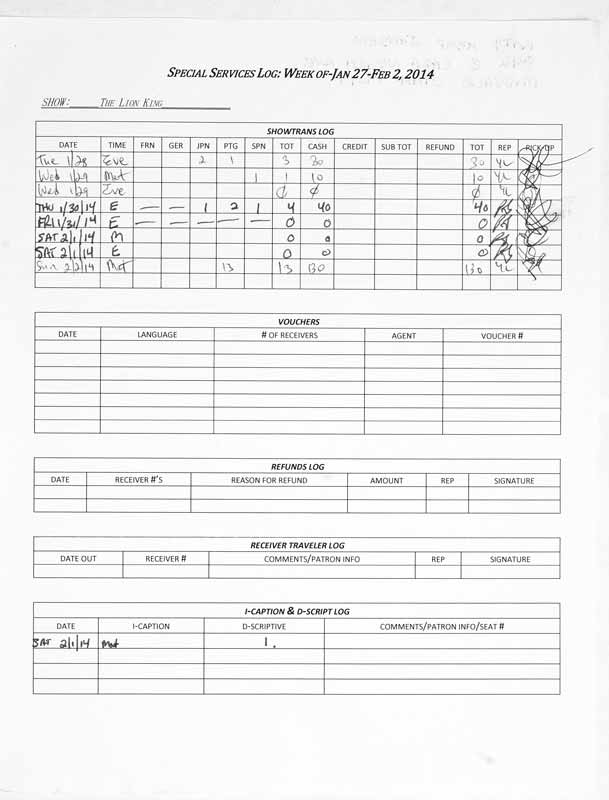 SPECIAL SERVICES LOG: WEEK OF-JAN 27-FEB 2, 2014
SHOW: THE LION KING
SHOWTRANS LOG
DATE TIME FRN GER JPN PTG SPN TOT CASH CREDIT SUB TOT REFUND TOT REP PICK-UP
Tue 1/28 Eve 2 1 3 30 30 YL
Wed 1/29 Mat 1 1 10 10 YL
Wed 1/29 Eve ¢ ¢ ¢ YL
THU 1/30/14 E — — 1 2 1 4 40 40
FRI 1/31/14 E — — — — — 0 0 0
SAT 2/1/14 M 0 0 0
SAT 2/1/14 E 0 0 0
Sun 2/2/14 Mat 13 13 130 130 YL
VOUCHERS
DATE LANGUAGE # OF RECEIVERS AGENT VOUCHER #
REFUNDS LOG
DATE RECEIVER #'S REASON FOR REFUND AMOUNT REP SIGNATURE
RECEIVER TRAVELER LOG
DATE OUT RECEIVER # COMMENTS/PATRON INFO REP SIGNATURE
I-CAPTION & D-SCRIPT LOG
DATE I-CAPTION D-SCRIPTIVE COMMENTS/PATRON INFO/SEAT #
SAT 2/1/14 Mat 1.